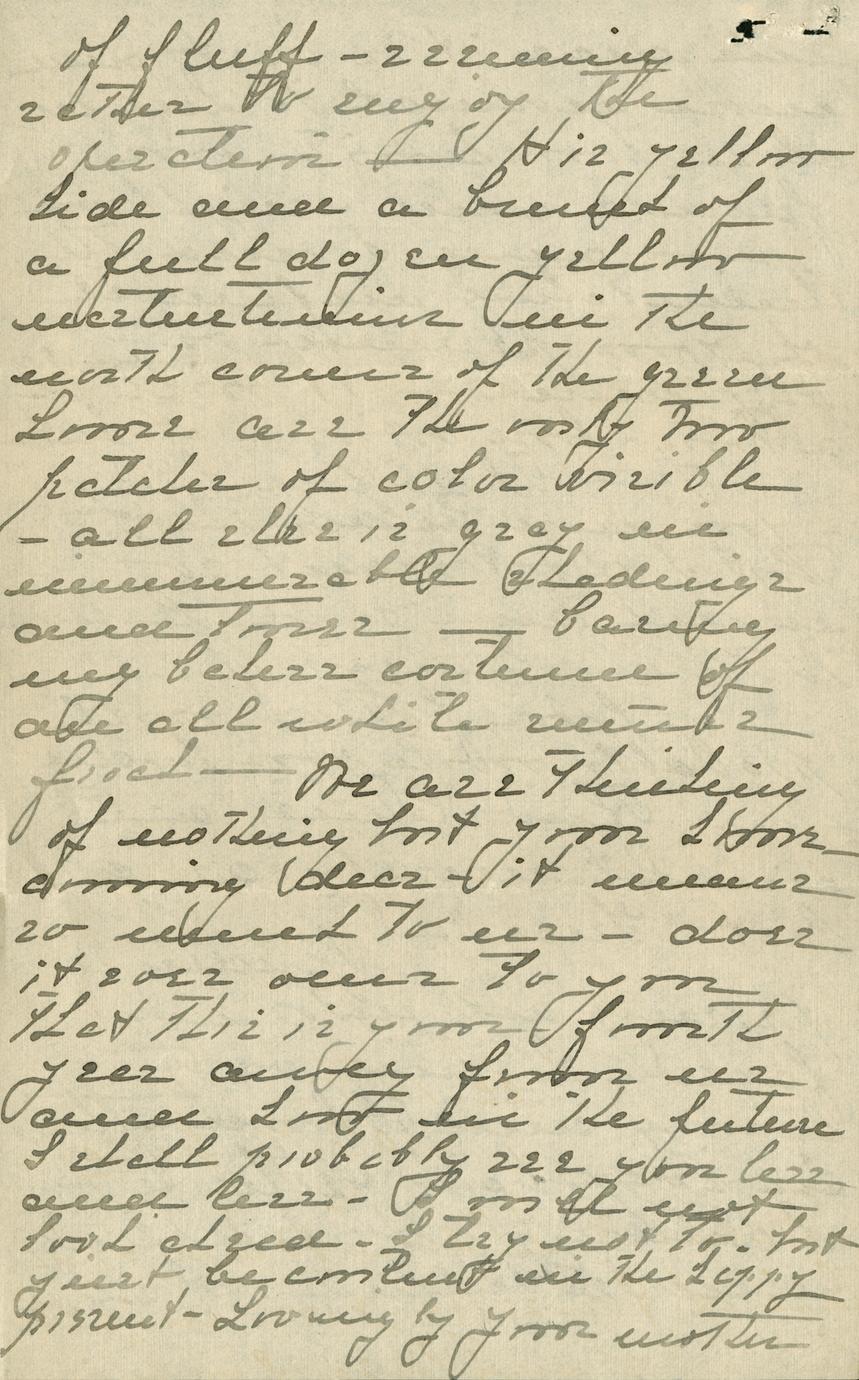 of fluff - seeming
rather to enjoy the
operation — His yellow
side and a bunch of
a full dozen yellow
nasturtiums in the
north corner of the green
house are the only two
patches of color visible
- all else is gray in
innumerable shadings
and tones — baring
my
costume of
an all white winter
frock — We are thinking
of nothing but your home
coming dear - it means
so much to us - does
it ever occur to you
that this is your fourth
year away from us
and that in the future
I shall probably see you less
and less - I will not
look ahead - I try not to. but
just be content in the happy
present - Lovingly your mother